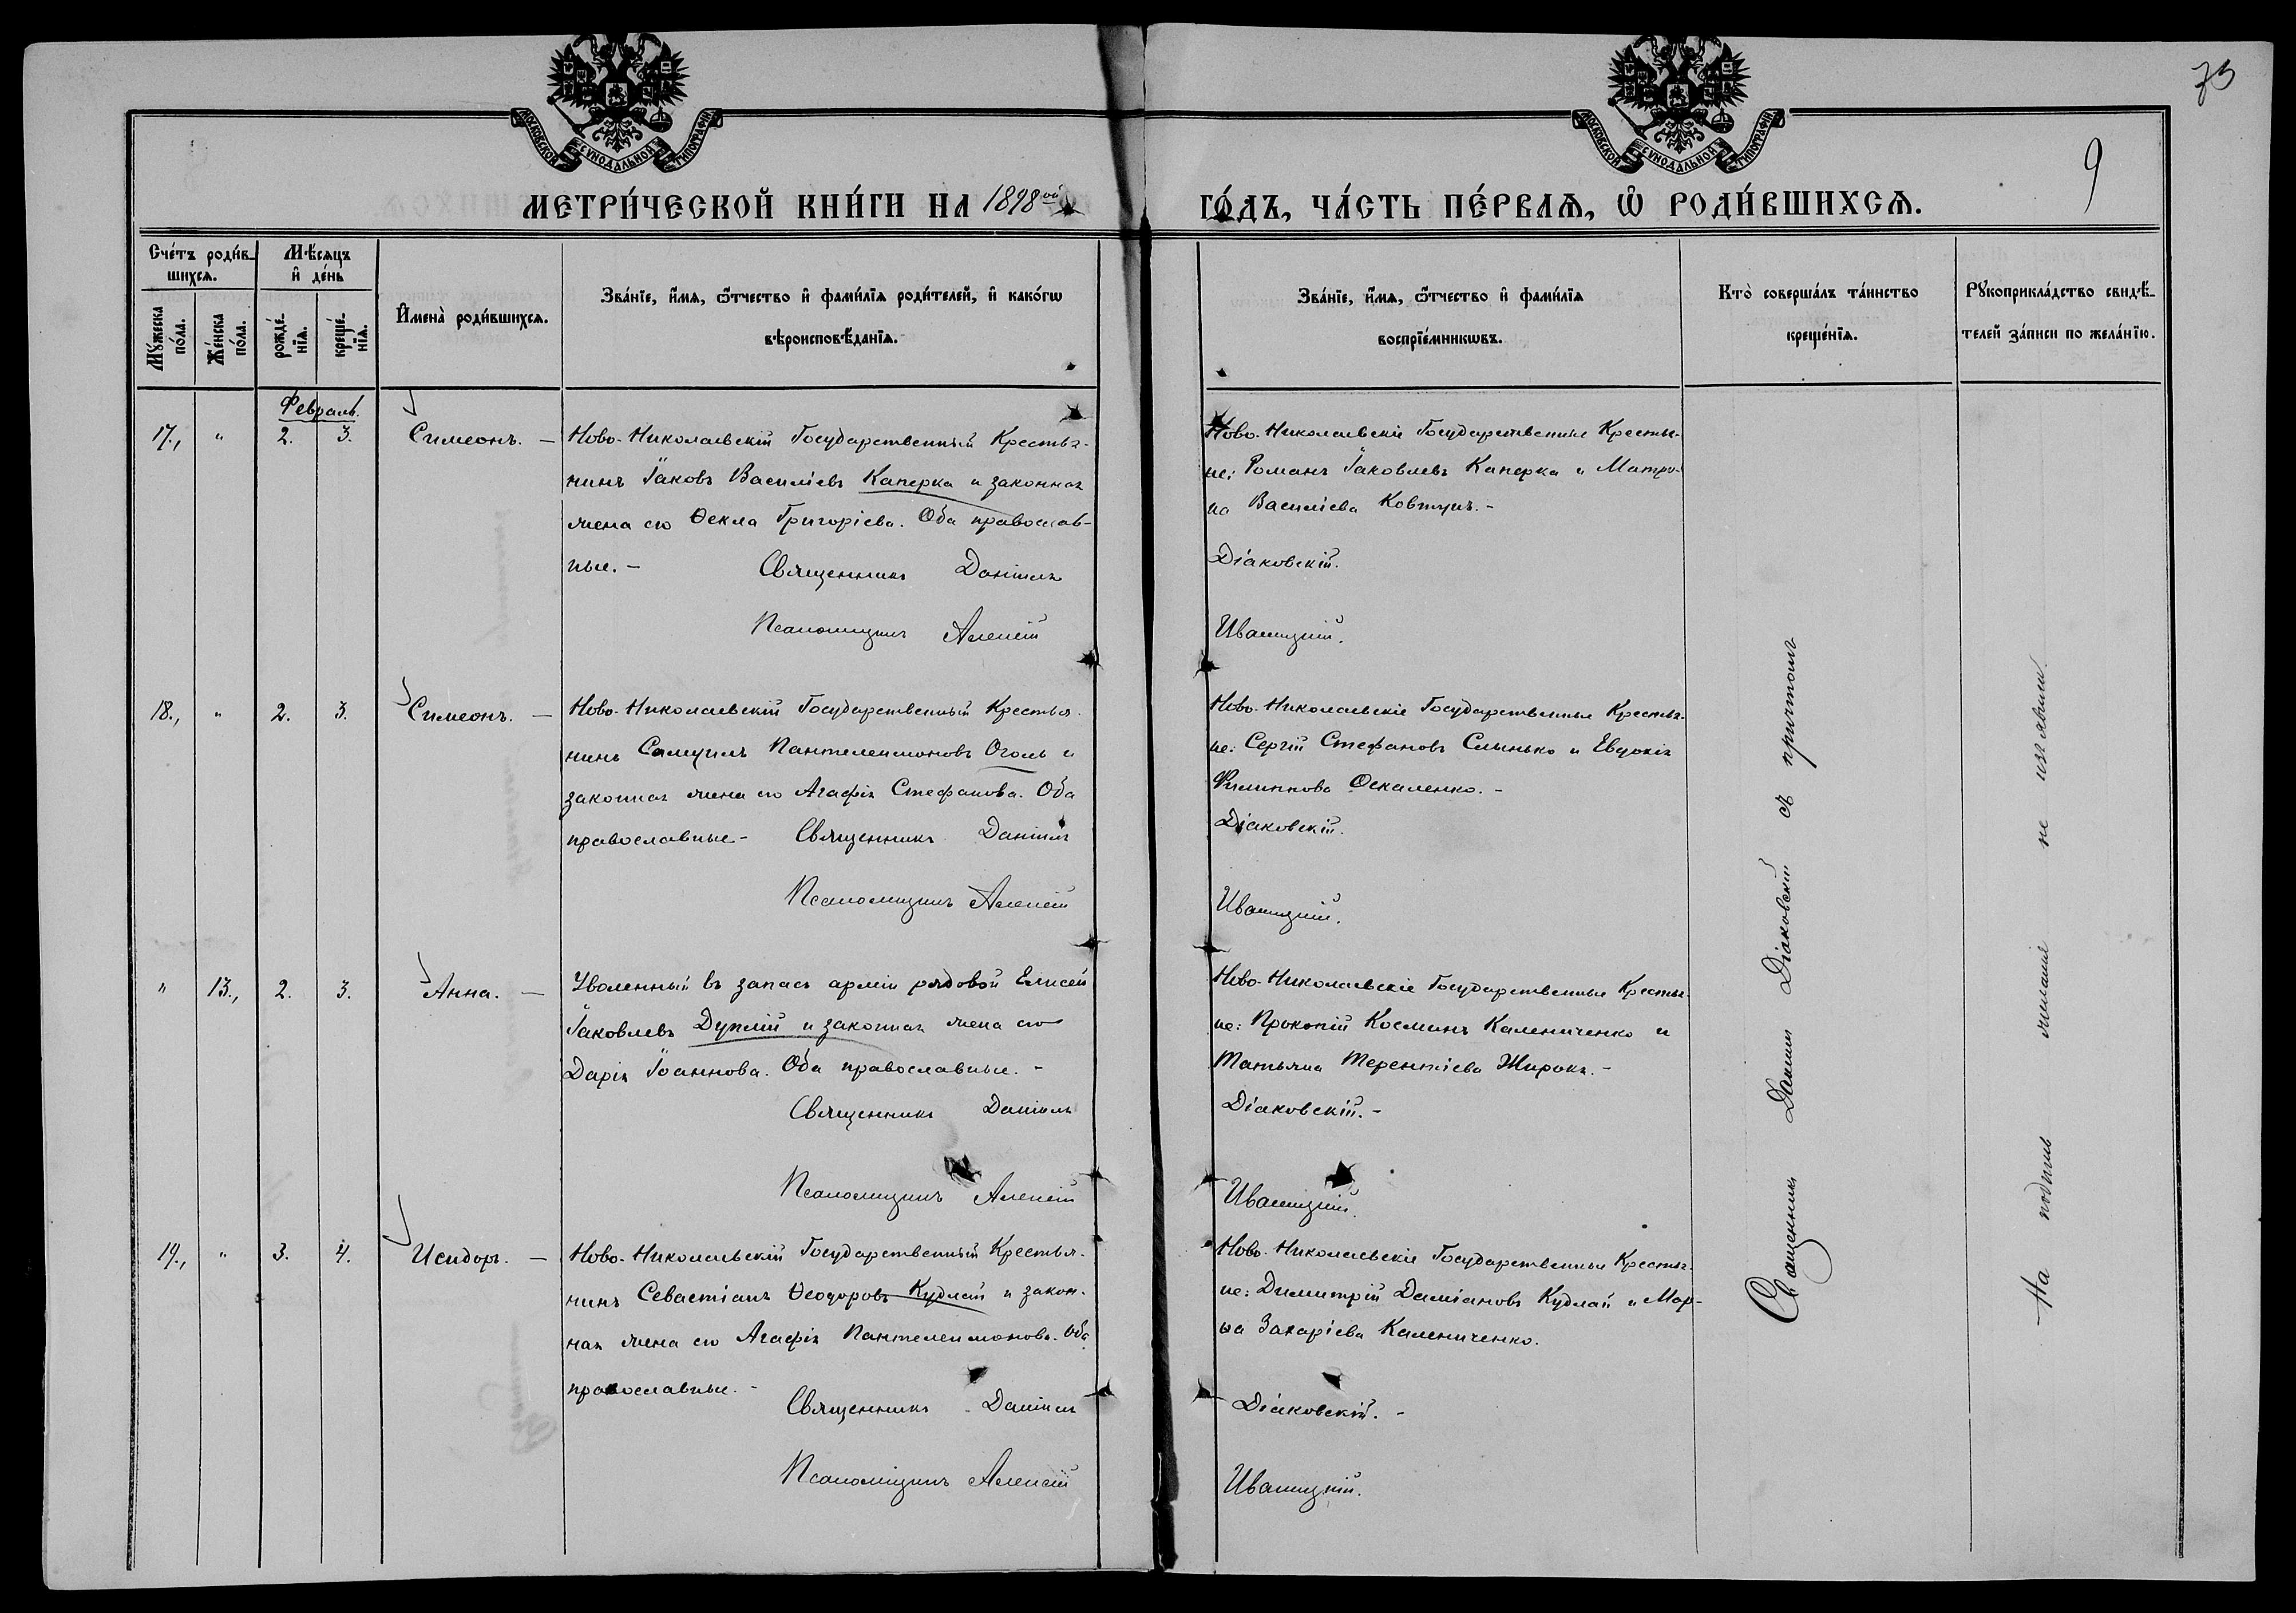 73
9
МОСКОВСКОЙ СѴНОДАЛЬНОЙ ТИПОГРАФІИ
МОСКОВСКОЙ СѴНОДАЛЬНОЙ ТИПОГРАФІИ
МЕТРИ́ЧЕСКОЙ КНИ́ГИ НА 1898ой ГО́ДЪ, ЧА́СТЬ ПЕ́РВАѦ, Ѡ҆ РОДИ́ВШИХСѦ.
Сче́тъ роди́в-
шихсѧ.
Мꙋ́жеска по́ла.
Же́нска по́ла.
Мѣ́сѧцъ
и҆ де́нь
рожде́-
нїѧ.
креще́-
нїѧ.
И҆мена̀ роди́вшихсѧ.
Зва́нїе, и҆́мѧ, ѻ҆́тчество и҆ фами́лїѧ роди́телей, и҆ како́гѡ
вѣроисповѣ́данїѧ.
Зва́нїе, и҆́мѧ, ѻ҆́тчество и҆ фами́лїѧ
воспрїе́мникѡвъ.
Кто̀ соверша́лъ та́инство
креще́нїѧ.
Рꙋкоприкла́дство свидѣ́-
телей за́писи по жела́нїю.
Февраль.
17., " 2. 3. Симеонъ. —
Ново-Николаевскій Государственный Крестья-
нинъ Іаковъ Василіевъ Каперка и законная
жена его Ѳекла Григоріева. Оба православ-
ные. — Священникъ Даніилъ
Псаломщикъ Алексій
Ново-Николаевскіе Государственные Крестья-
не: Романъ Іаковлевъ Каперка и Матро-
на Василіева Ковтунъ. -
Діаковскій.
Ивашицкій.
18., " 2. 3. Симеонъ. —
Ново-Николаевскій Государственный Крестья-
нинъ Самуилъ Пантелеимоновъ Оголь и
законная жена его Агафія Стефанова. Оба
православные - Священникъ Даніилъ
Псаломщикъ Алексій
Ново-Николаевскіе Государственные Крестья-
не: Сергій Стефановъ Слынько и Евдокія
Филиппова Оскаленко. -
Діаковскій.
Ивашицкій.
" 13., 2. 3. Анна. —
Уволенный въ запасъ арміи рядовой Елисей
Іаковлевъ Дуплій и законная жена его
Дарія Іоаннова. Оба православные. -
Священникъ Даніилъ
Псаломщикъ Алексій
Ново-Николаевскіе Государственные Крестья-
не: Прокопій Косминъ Калениченко и
Татьяна Терентіева Жирокъ. -
Діаковскій. -
Ивашицкій.
19., " 3. 4. Исидоръ. —
Ново-Николаевскій Государственный Крестья-
нинъ Севастіанъ Ѳеодоровъ Кудлай и закон-
ная жена его Агафія Пантелеимонова. Оба
православные. -
Священникъ Даніилъ
Псаломщикъ Алексій
Ново-Николаевскіе Государственные Крестья-
не: Димитрій Даміановъ Кудлай и Мар-
ѳа Захаріева Калениченко.
Діаковскій. -
Ивашицкій.
Священникъ Даніилъ Діаковскій съ причтомъ
На подпись желанія не изъявили.